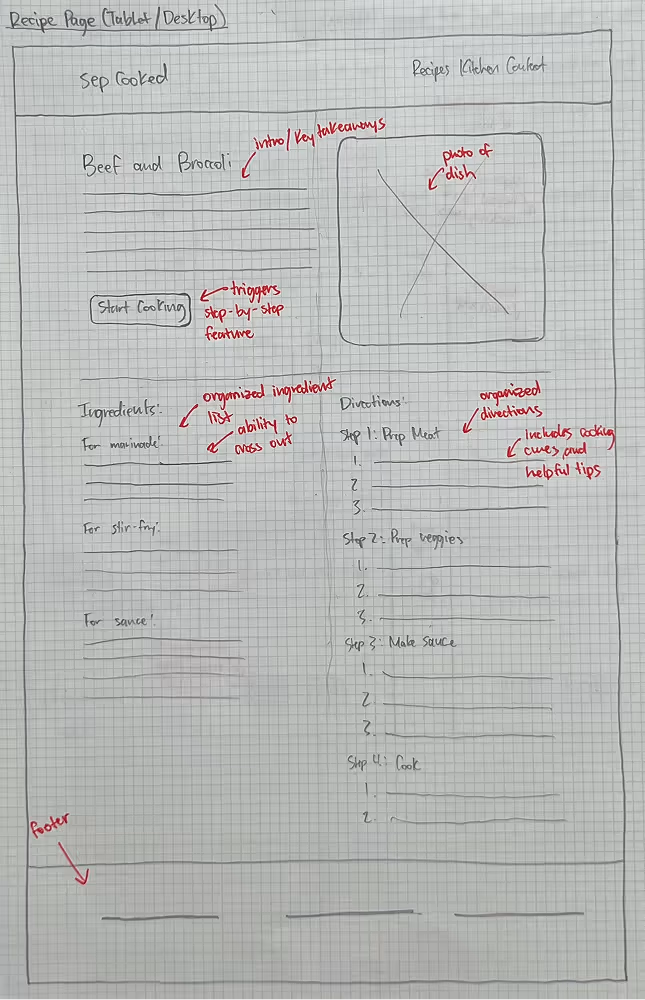 Recipe Page (Tablet/Desktop)
Sep Cooked
Recipes Kitchen Contact
Beef and Broccoli
intro/key takeaways
photo of
dish
Start Cooking
triggers
step-by-step
feature
Ingredients:
organized ingredient
list
For marinade:
ability to
cross out
For stir-fry:
For sauce:
Directions:
organized
directions
Step 1: Prep Meat
includes cooking
cues and
helpful tips
1.
2
3.
Step 2: Prep veggies
1.
2.
3.
Step 3: Make sauce
1
2
3.
Step 4: Cook
1.
2.
footer